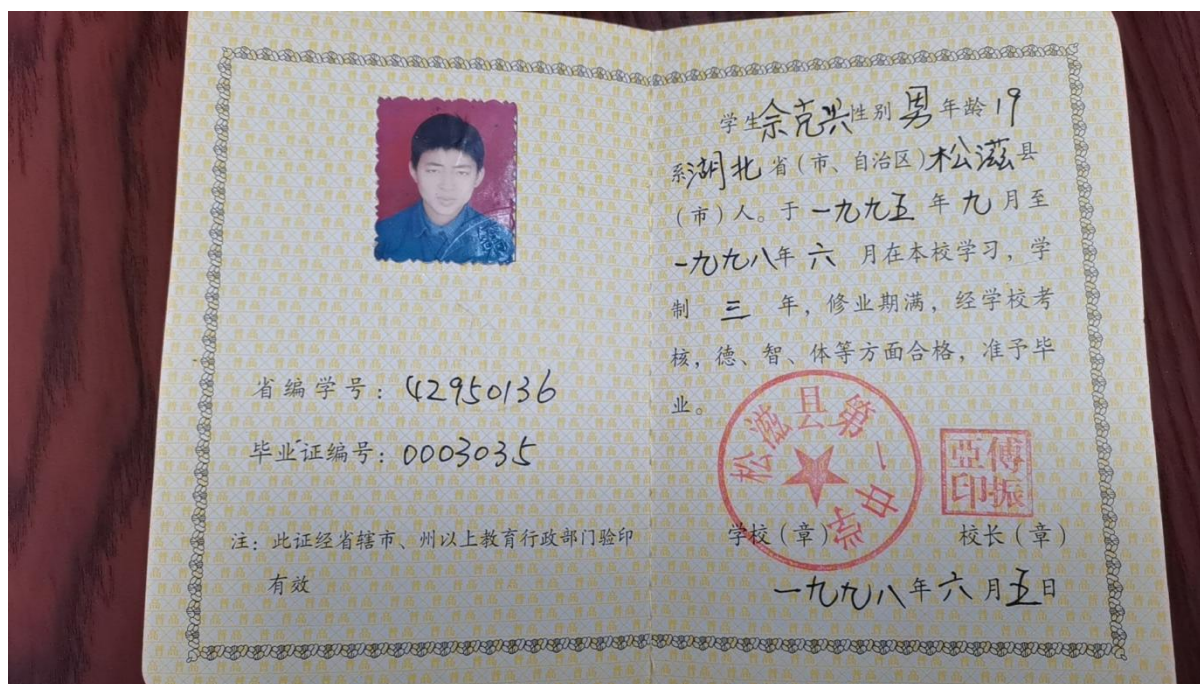 省编学号：42950136
毕业证编号：0003035
注：此证经省辖市、州以上教育行政部门验印
有效
学生佘克兴性别男年龄19
系湖北省（市、自治区）松滋县
（市）人。于一九九五年九月至
一九九八年六月在本校学习，学
制三年，修业期满，经学校考
核，德、智、体等方面合格，准予毕
业。
松滋县第一中学
傅振亚印
学校（章）
校长（章）
一九九八年六月五日